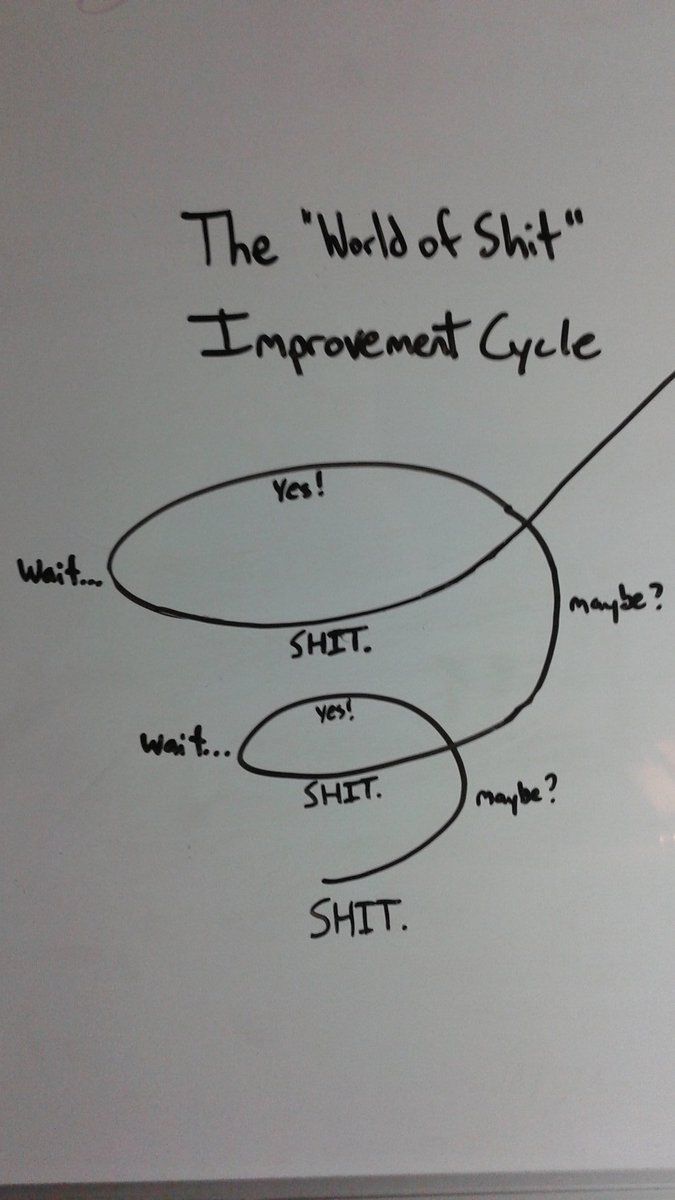 The "World of Shit"
Improvement Cycle
Yes!
Wait...
maybe?
SHIT.
yes!
Wait...
SHIT.
maybe?
SHIT.